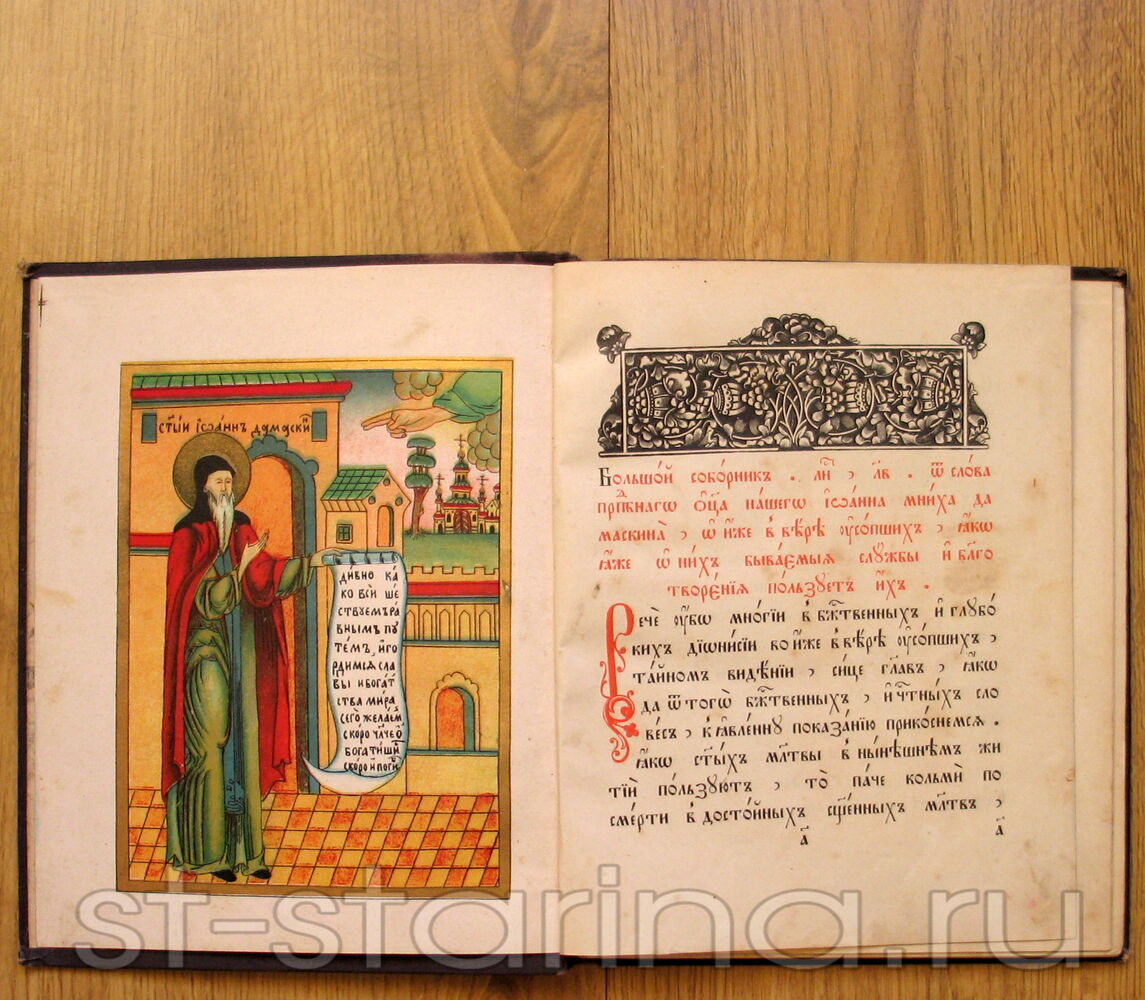 ст҃ы́и і҆ѡа́ннъ дамаски́н
дивно ка́
ко всѝ ше
ствуемъ ра́
внымъ пу
те́мъ, и҆ го
рдимся сла
вы и богат
ства ми́ра
сего̀ жела́ем
скоро чл҃че о҆
богати́ши
скоро и поги́
Большо́й собо́рникъ . ли́ , л҃в . ѿ сло́ва
прпⷣбнагѡ ѻ҆ц҃а̀ на́шегѡ і҆ѡа́нна мни́ха да
маскина̀ , ѡ҆ и҆́же в вѣ́рѣ ᲂу҆со́пшихъ , ꙗ҆́кѡ
ꙗ҆̀же ѡ҆ ни́хъ быва́емыꙗ слу́жбы и҆ бл҃го
творе́нїꙗ по́льзуетъ и҆́хъ .
Рече́ ᲂу҆́бѡ мно́гїи в бж҃твенныхъ и҆ глубо́
кихъ дїѡни́сїи во и҆́же в вѣ́рѣ ᲂу҆со́пшихъ ,
та́йномъ виде́нїи , си́це гл҃въ , ꙗ҆́кѡ
да ѿ того̀ бж҃твенныхъ , и҆ чⷭ҇тны́хъ сло
ве́съ , к ꙗ҆вле́нну показа́нїю прико́снемсѧ .
ꙗ҆́кѡ ст҃ы́хъ мл҃твы в ны́нѣшнѣмъ жи
тїѝ по́льзуютъ , то̀ па́че кольмѝ по
сме́рти в досто́йныхъ сщ҃е́нныхъ мл҃твъ ,
а҃
а҃
st-starina.ru